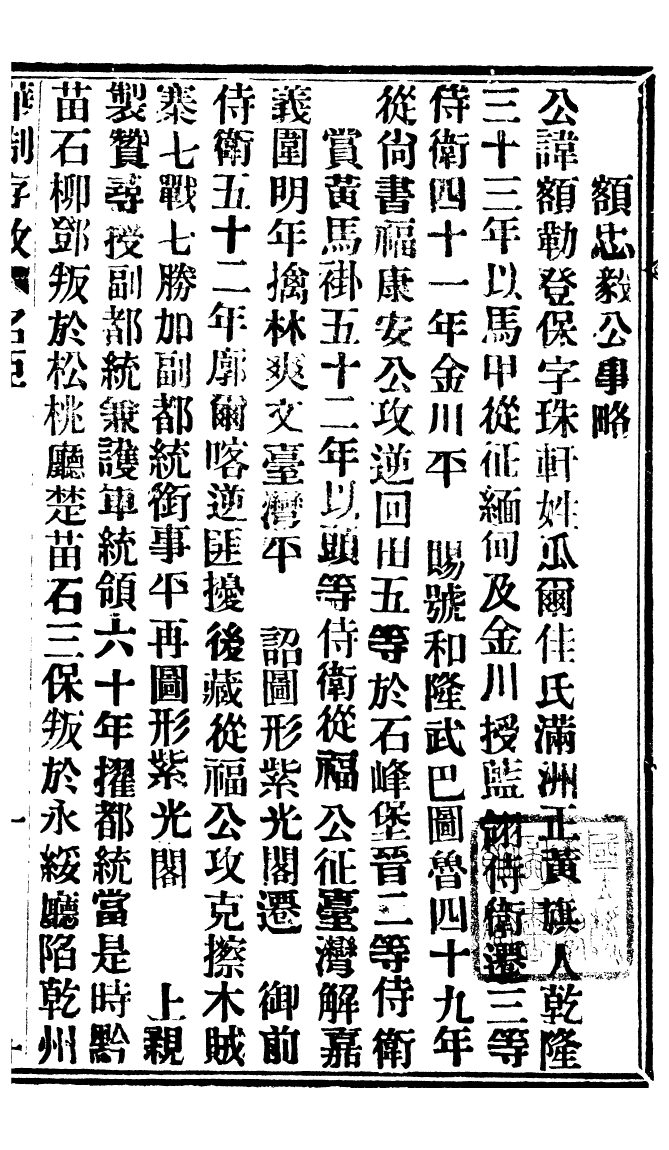 額忠毅公事略
公諱額勒登保字珠軒姓瓜爾佳氏滿洲正黃旗人乾隆
三十三年以馬甲從征緬甸及金川授藍翎侍衛遷三等
侍衛四十一年金川平　賜號和隆武巴圖魯四十九年
從尙書福康安公攻逆回田五等於石峰堡晉二等侍衛
賞黃馬褂五十二年以頭等侍衛從福公征臺灣解嘉
義圍明年擒林爽文臺灣平　詔圖形紫光閣遷　御前
侍衛五十二年廓爾喀逆匪擾後藏從福公攻克擦木賊
寨七戰七勝加副都統銜事平再圖形紫光閣　上親
製贊尋授副都統兼護軍統領六十年擢都統當是時黔
苗石柳鄧叛於松桃廳楚苗石三保叛於永綏廳陷乾州
名臣